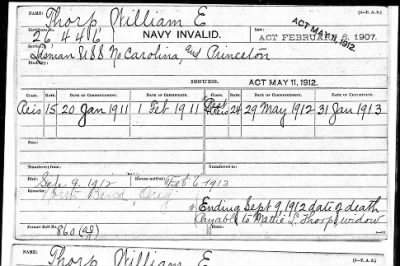 NAME: Thorp William E. (3—P. A. G.)
Certificate No. 26446 NAVY INVALID. ACT FEBRUARY 6, 1907. ACT MAY 11, 1912.
Seaman USS No Carolina, and Princeton
SERVICE: ACT MAY 11, 1912.
CLASS. RATE. DATE OF COMMENCEMENT. DATE OF CERTIFICATE. CLASS. RATE. DATE OF COMMENCEMENT. DATE OF CERTIFICATE.
Reis 15 20 Jan 1911 1 Feb 1911 24 29 May 1912 31 Jan 1913
Died: Sept. 9, 1912 Feb 6 1913
North Bend, Oreg
* Ending Sept 9, 1912 date of death
Payable to Mattie L. Thorp, widow
860
NAME: Thorp William E. (3—P. A. G.)